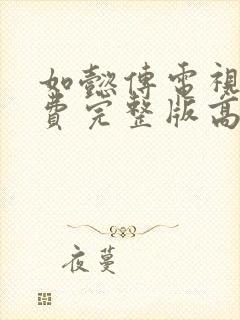 如懿傳電視
費完整版高
夜蔓